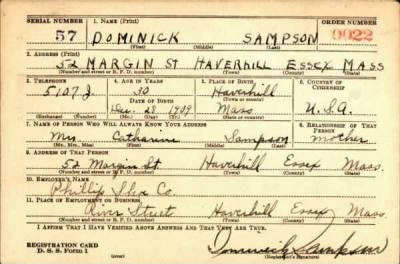 SERIAL NUMBER 1. NAME (Print) ORDER NUMBER
57 DOMINICK SAMPSON 0022
(First) (Middle) (Last)
2. ADDRESS (Print)
52 MARGIN ST HAVERHILL ESSEX MASS
(Number and street or R. F. D. number) (Town) (County) (State)
3. TELEPHONE 4. AGE IN YEARS 5. PLACE OF BIRTH 6. COUNTRY OF CITIZENSHIP
5107 J 30 Haverhill
DATE OF BIRTH (Town or county)
Dec. 1909 Mass U.S.A.
(Exchange) (Number) (Mo.) (Day) (Yr.) (State or country)
7. NAME OF PERSON WHO WILL ALWAYS KNOW YOUR ADDRESS 8. RELATIONSHIP OF THAT PERSON
Mrs. Catharine Sampson mother
(Mr., Mrs., Miss) (First) (Middle) (Last)
9. ADDRESS OF THAT PERSON
52 Margin St Haverhill Essex Mass.
(Number and street or R. F. D. number) (Town) (County) (State)
10. EMPLOYER'S NAME
Phillip Shoe Co.
11. PLACE OF EMPLOYMENT OR BUSINESS
River Street Haverhill Essex Mass
(Number and street or R. F. D. number) (Town) (County) (State)
I AFFIRM THAT I HAVE VERIFIED ABOVE ANSWERS AND THAT THEY ARE TRUE.
REGISTRATION CARD
D. S. S. Form 1 Dominick Sampson
(over) (Registrant's signature)